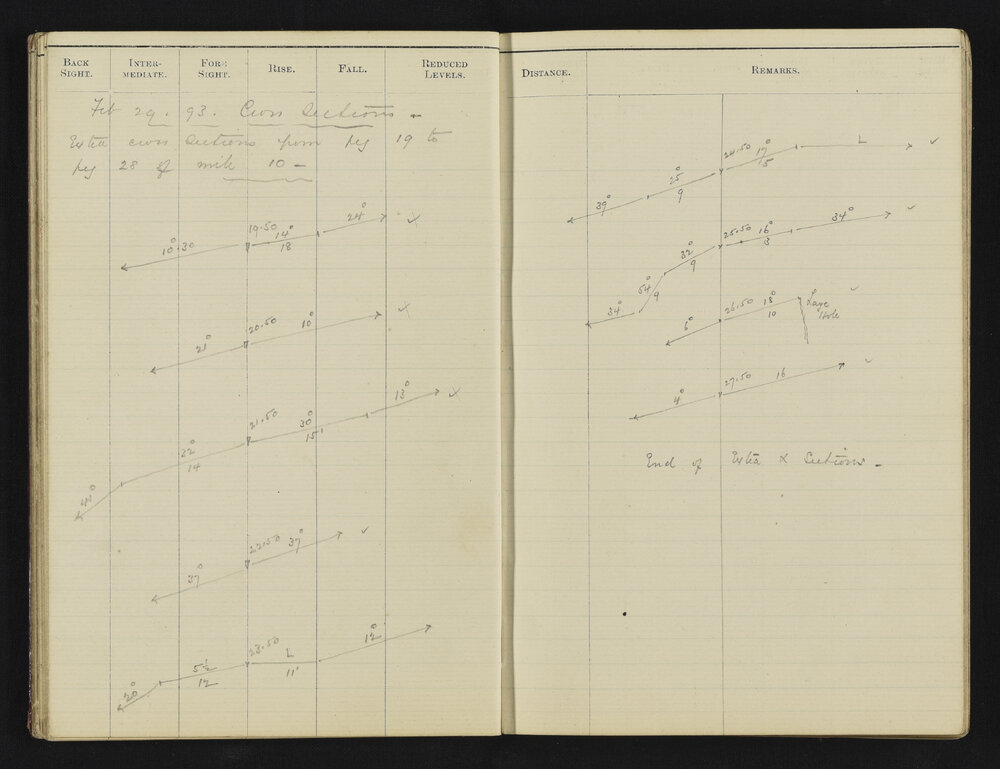 BACK SIGHT. INTER-MEDIATE. FORE SIGHT. RISE. FALL. REDUCED LEVELS.
Feb 29. 93. Cross Sections -
Extra cross sections from peg 19 to
peg 28 of mile 10 -
10° 30 19.50 14° 18 24°
21° 20.50 10°
42° 22° 14 21.50 30° 15' 13°
37° 22.50 37°
20° 5½ 12 23.50 L 11' 12°
DISTANCE. REMARKS.
39° 25° 9 24.50 17° 15 L
34° 54° 9 32° 9 25.50 16° 3 34°
6° 26.50 18° 10 Lava Hole
4° 27.50 16
End of Extra X Sections -